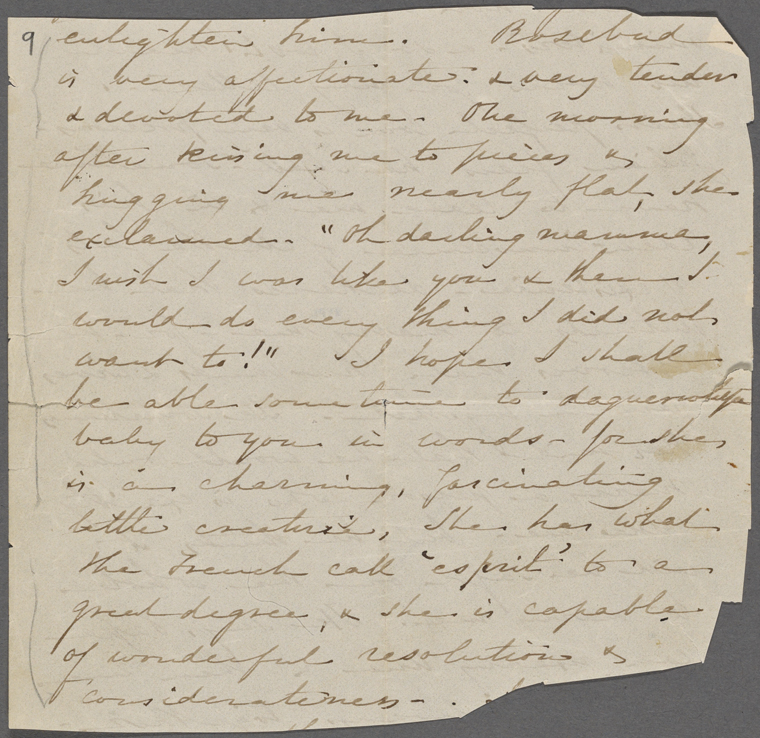 9 enlighten him. Rosebud
is very affectionate. & very tender
& devoted to me - One morning
after kissing me to pieces &
hugging me nearly flat, she
exclaimed - "Oh darling mamma,
I wish I was like you & then I
would do every thing I did not
want to!" I hope I shall
be able sometime to daguerrotype
baby to you in words - for she
is a charming, fascinating
little creature, She has what
the French call 'esprit' to a
great degree, & she is capable
of wonderful resolution &
considerateness - .